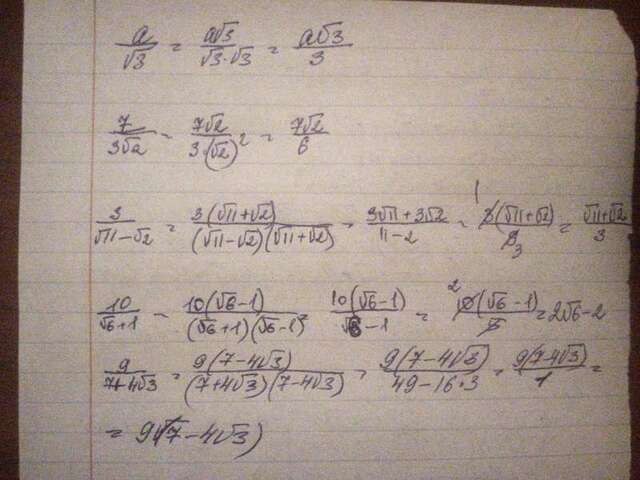 a/√3 = a√3/√3·√3 = a√3/3
7/3√2 = 7√2/3·(√2)² = 7√2/6
3/√11-√2 = 3(√11+√2)/(√11-√2)(√11+√2) = 3√11+3√2/11-2 = 1 3(√11+√2)/9 3 = √11+√2/3
10/√6+1 = 10(√6-1)/(√6+1)(√6-1) = 10(√6-1)/6-1 = 2 10(√6-1)/5 = 2√6-2
9/7+4√3 = 9(7-4√3)/(7+4√3)(7-4√3) = 9(7-4√3)/49-16·3 = 9(7-4√3)/1 =
= 9(7-4√3)